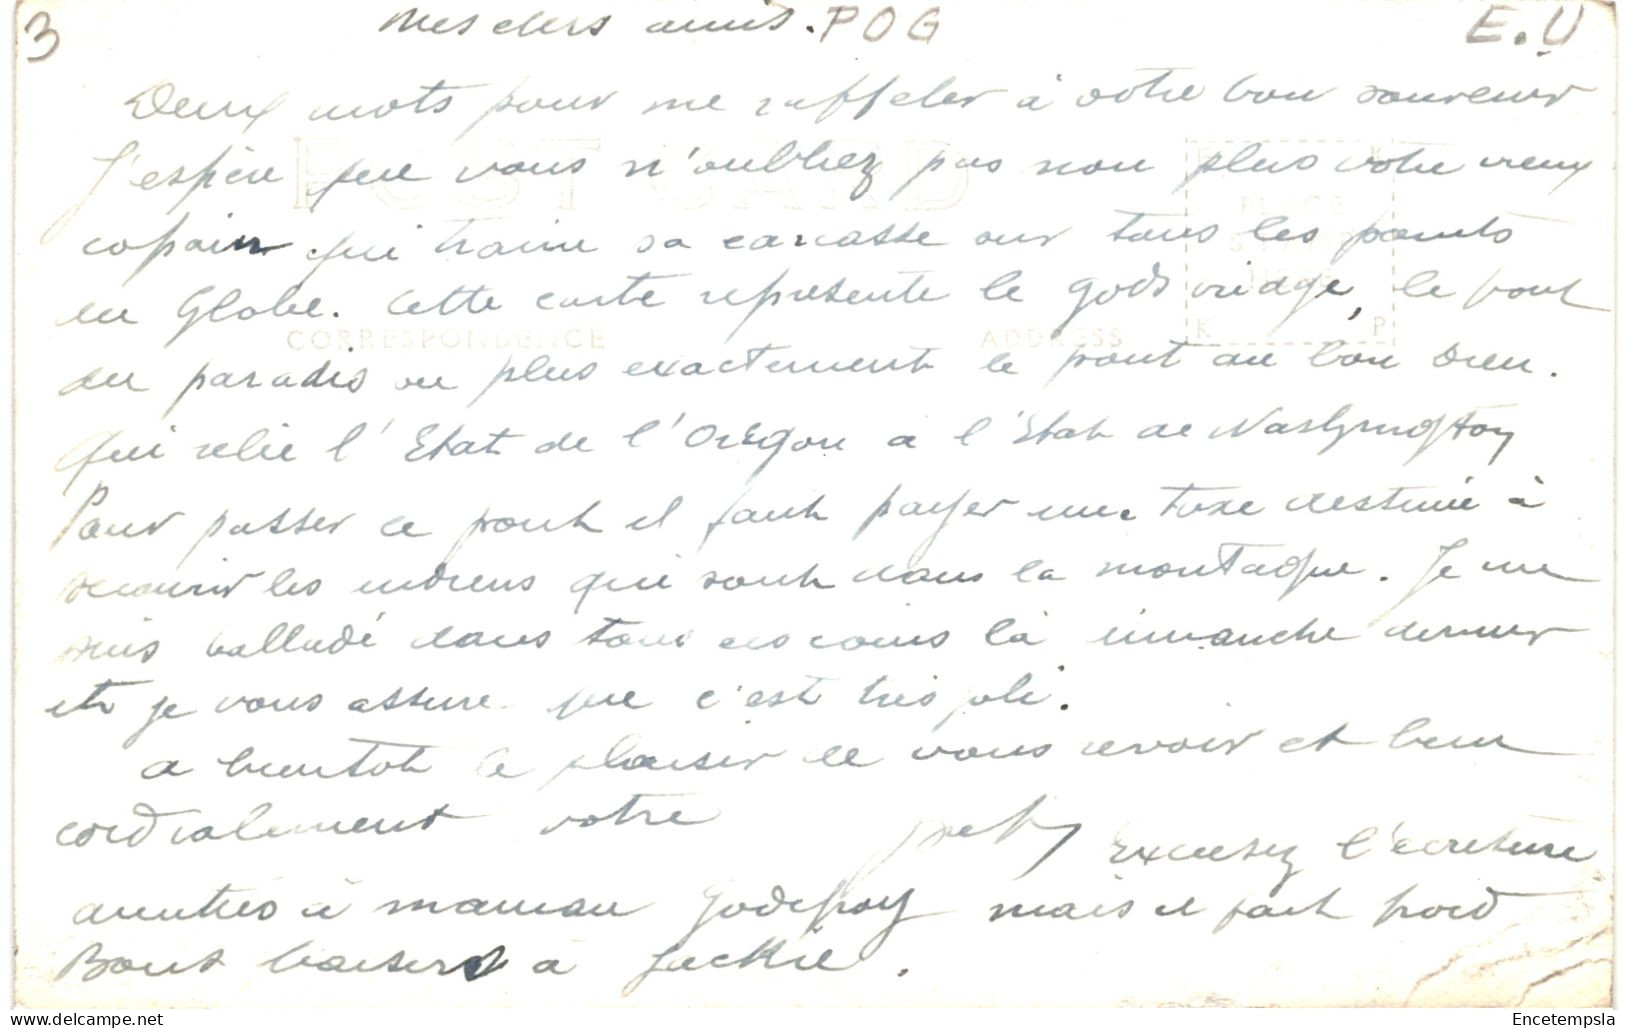 3 Mes chers amis. POG E.U
Deux mots pour me rappeler à votre bon souvenir
J'espère que vous n'oubliez pas non plus votre vieux
POST CARD
PLACE
STAMP
HERE
copain qui traine sa carcasse sur tous les points
du Globe. Cette carte représente le gods bridge, le pont
CORRESPONDENCE ADDRESS K P
du paradis ou plus exactement le pont au bon Dieu.
Qui relie l'Etat de l'Orégon à l'Etat de Washyngton
Pour passer ce pont il faut payer une taxe destinée à
secourir les indiens qui sont dans la montagne. Je me
suis balladé dans tous ces coins là dimanche dernier
et je vous assure que c'est très joli.
a bientot le plaisir de vous revoir et bien
cordialement votre
Excusez l'écriture
amitiés à maman Godefroy mais il fait froid
Bons baisers à Jackie.
Encetempsla
www.delcampe.net